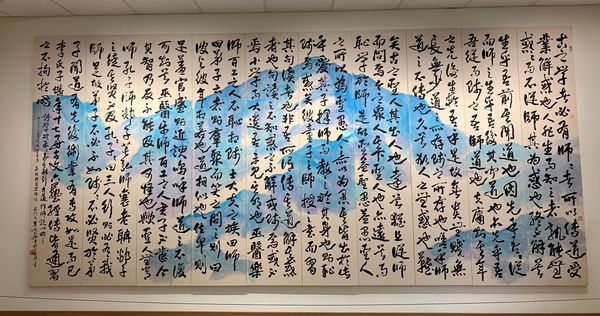 古之學者必有師師者所以傳道受
業解惑也人非生而知之者孰能無
惑惑而不從師其為惑也終不解矣
生乎吾前其聞道也固先乎吾吾從
而師之生乎吾後其聞道也亦先乎
吾吾從而師之吾師道也夫庸知其年
之先後生於吾乎是故無貴無賤無
長無少道之所存師之所存也嗟乎師
道之不傳也久矣欲人之無惑也難
矣古之聖人其出人也遠矣猶且從師
而問焉今之眾人其下聖人也亦遠矣而
恥學於師是故聖益聖愚益愚聖人
之所以為聖愚人之所以為愚其皆出於此
乎愛其子擇師而教之於其身也則恥
師焉惑矣彼童子之師授之書而習
其句讀者也非吾所謂傳其道解其惑
者也句讀之不知惑之不解或師焉或不
焉小學而大遺吾未見其明也巫醫樂
師百工之人不恥相師士大夫之族曰師
曰弟子云者則群聚而笑之問之則曰
彼與彼年相若也道相似也位卑則
足羞官盛則近諛嗚呼師道之不復
可知矣巫醫樂師百工之人君子不齒今
其智乃反不能及其可怪也歟聖人無常
師孔子師郯子萇弘師襄老聃郯子
之徒其賢不及孔子孔子曰三人行則必有我
師是故弟子不必不如師師不必賢於弟
子聞道有先後術業有專攻如是而已
李氏子蟠年十七好古文六藝經傳皆通習
之不拘於時學於余余嘉其能行古道作師說以貽之